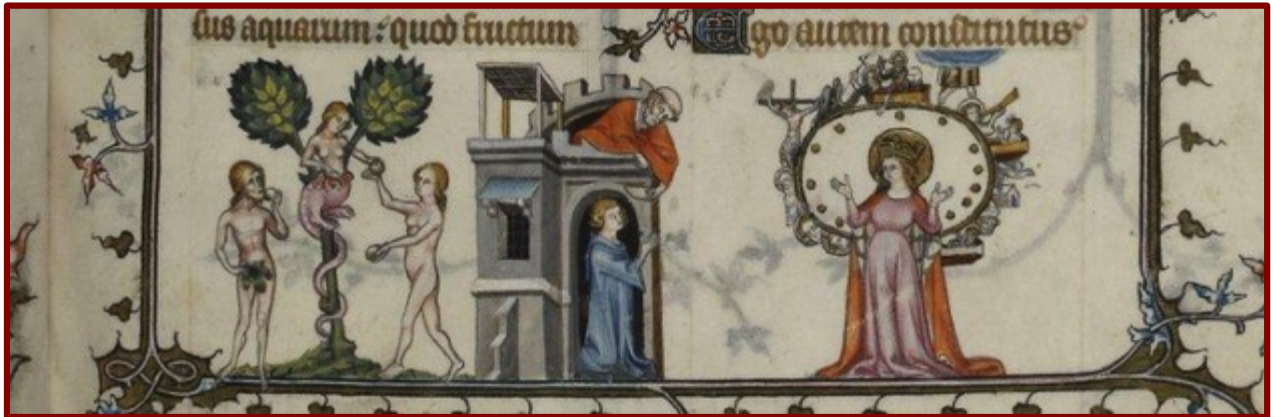 sus aquarum : quod fructum
Ego autem constitutus